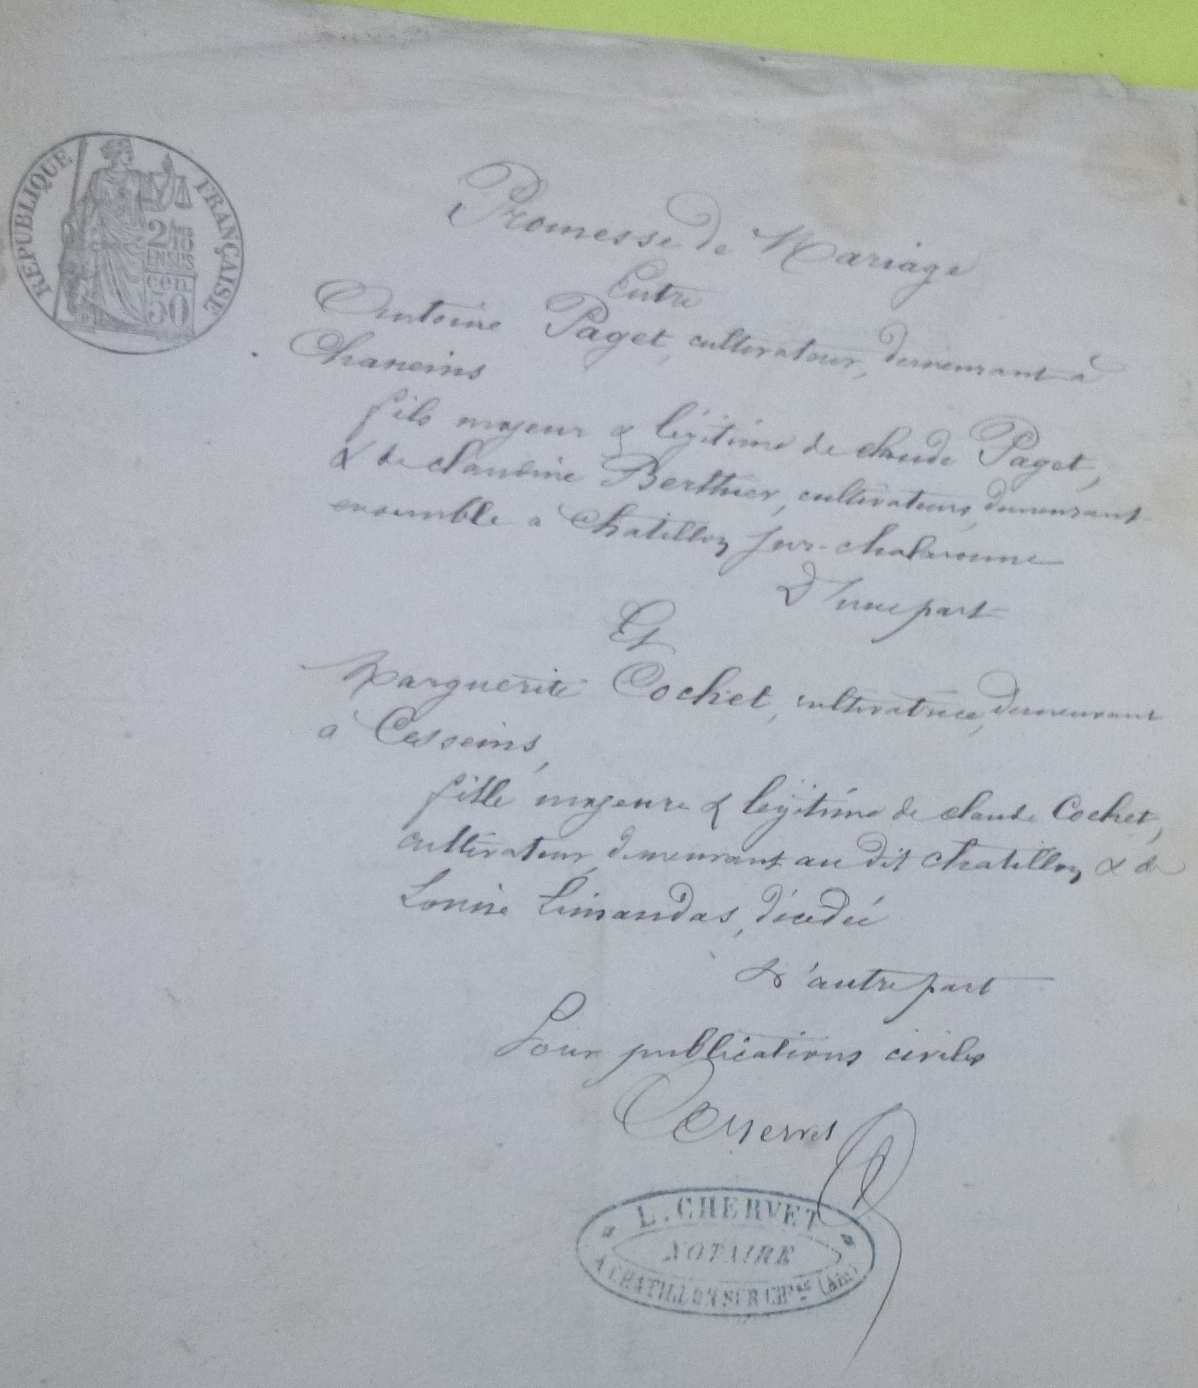 RÉPUBLIQUE FRANÇAISE
2/10
EN SUS
50 cen
Promesse de Mariage
Entre
Antoine Paget, cultivateur, demeurant à
Chaneins
fils majeur & légitime de Claude Paget,
& de Claudine Berthier, cultivateurs, demeurant
ensemble a Chatillon sur-chalaronne
D'une part
Et
Marguerite Cochet, cultivatrice, demeurant
a Cesseins,
fille majeure & légitime de Claude Cochet,
cultivateur, demeurant au dit Chatillon & de
Louise Limandas, décédée
D'autre part
Pour publications civiles
Chervet
L. CHERVET
NOTAIRE
A CHATILLON SUR CHne (Ain)